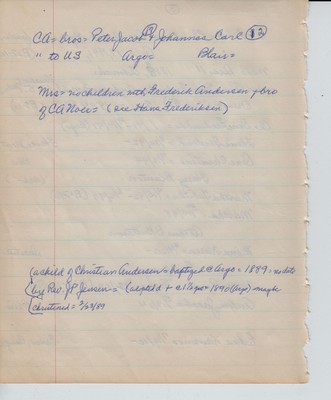 CA= bros= Peter, Jacob (?) Johannas Carl (12)
" to US Argo= Blair=
Mrs= no children with Frederik Andersen = bro
of CA (see Hans Frederiksen)
a child of Christian Andersen = baptized @ Argo = 1889 = no date
by Rev. JP Jensen = (adopted d + @ 1½ yrs + 1890 (Argo) maybe
christened = 3/23/89